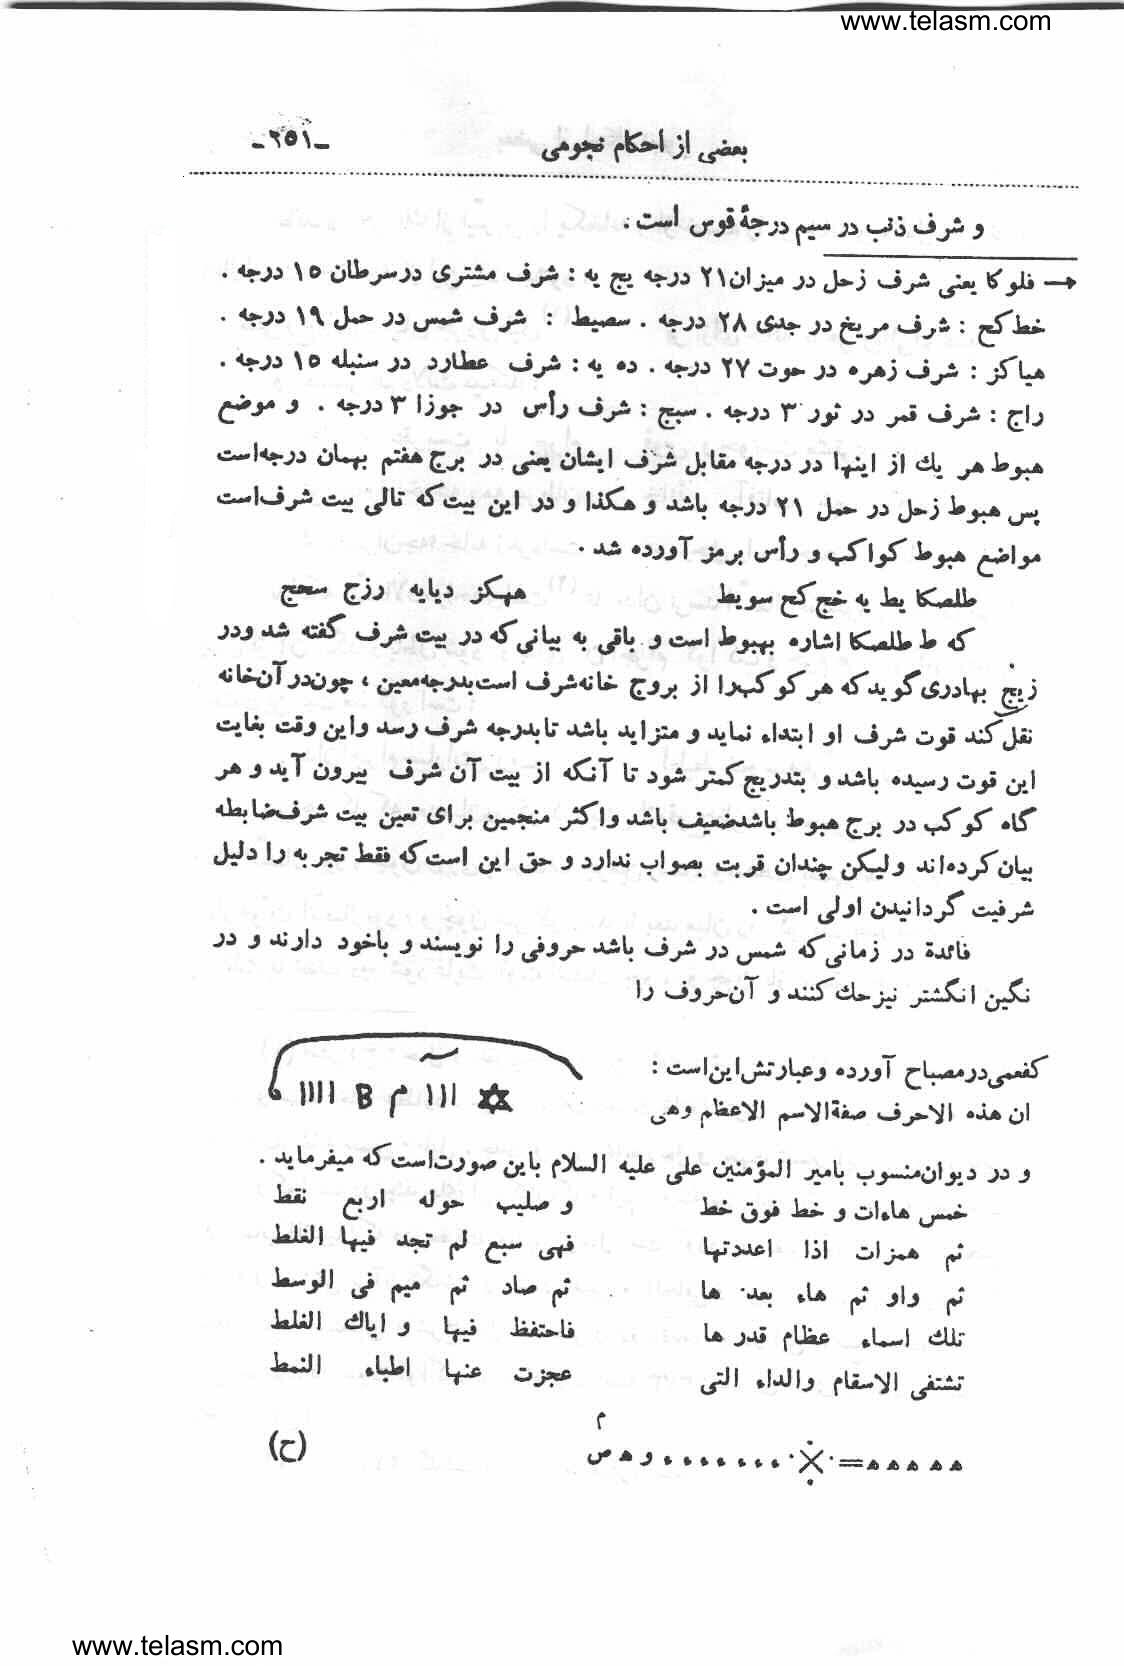 www.telasm.com
بعضی از احکام نجومی -۲۵۱-
و شرف ذنب در سیم درجهٔ قوس است.
فلو کا یعنی شرف زحل در میزان ۲۱ درجه یج یه : شرف مشتری در سرطان ۱۵ درجه .
خط کح : شرف مریخ در جدی ۲۸ درجه . سصیط : شرف شمس در حمل ۱۹ درجه .
هیاکز : شرف زهره در حوت ۲۷ درجه . ده یه : شرف عطارد در سنبله ۱۵ درجه .
راج : شرف قمر در ثور ۳ درجه . سبج : شرف رأس در جوزا ۳ درجه . و موضع
هبوط هر یك از اینها در درجه مقابل شرف ایشان یعنی در برج هفتم بهمان درجه است
پس هبوط زحل در حمل ۲۱ درجه باشد و هکذا و در این بیت که تالی بیت شرف است
مواضع هبوط کواکب و رأس برمز آورده شد .
طلصکا یط یه خج کح سویط ههکز دیایه رزج سحج
که ط طلصکا اشاره بهبوط است و باقی به بیانی که در بیت شرف گفته شد ودر
زیج بهادری گوید که هر کوکب را از بروج خانه شرف است بدرجه معین ، چون در آن خانه
نقل کند قوت شرف او ابتداء نماید و متزاید باشد تا بدرجه شرف رسد واین وقت بغایت
این قوت رسیده باشد و بتدریج کمتر شود تا آنکه از بیت آن شرف بیرون آید و هر
گاه کوکب در برج هبوط باشد ضعیف باشد واکثر منجمین برای تعین بیت شرف ضابطه
بیان کرده‌اند ولیکن چندان قربت بصواب ندارد و حق این است که فقط تجربه را دلیل
شرفیت گردانیدن اولی است .
فائدة در زمانی که شمس در شرف باشد حروفی را نویسند و باخود دارند و در
نگین انگشتر نیز حك کنند و آن حروف را
کفعمی در مصباح آورده و عبارتش این است :
ان هذه الاحرف صفة الاسم الاعظم وهی ✡ ااا م B اااا
و در دیوان منسوب بامیر المؤمنین علی علیه السلام باین صورت است که میفرماید .
خمس هاءات و خط فوق خط و صلیب حوله اربع نقط
ثم همزات اذا اعددتها فهی سبع لم تجد فیها الغلط
ثم واو ثم هاء بعد ها ثم صاد ثم میم فی الوسط
تلك اسماء عظام قدر ها فاحتفظ فیها و ایاك الغلط
تشتفی الاسقام والداء التی عجزت عنها اطباء النمط
ه ه ه ه ه = ⁘ ء ء ء ء ء ء ء و ه ص م (ح)
www.telasm.com